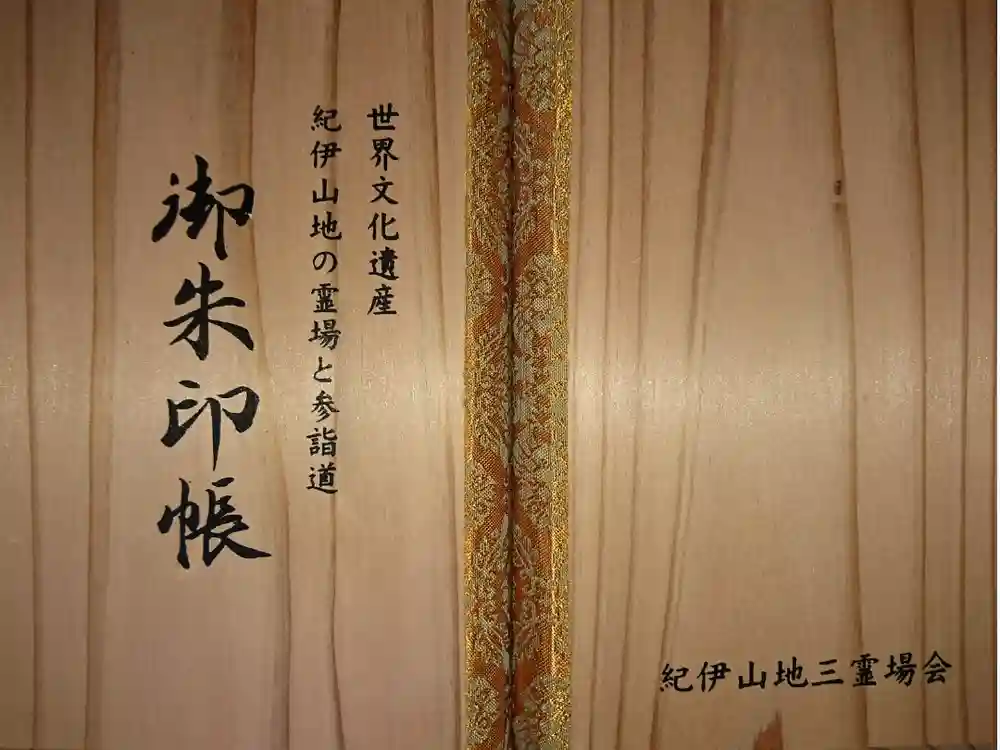 世界文化遺産
紀伊山地の霊場と参詣道
御朱印帳
紀伊山地三霊場会